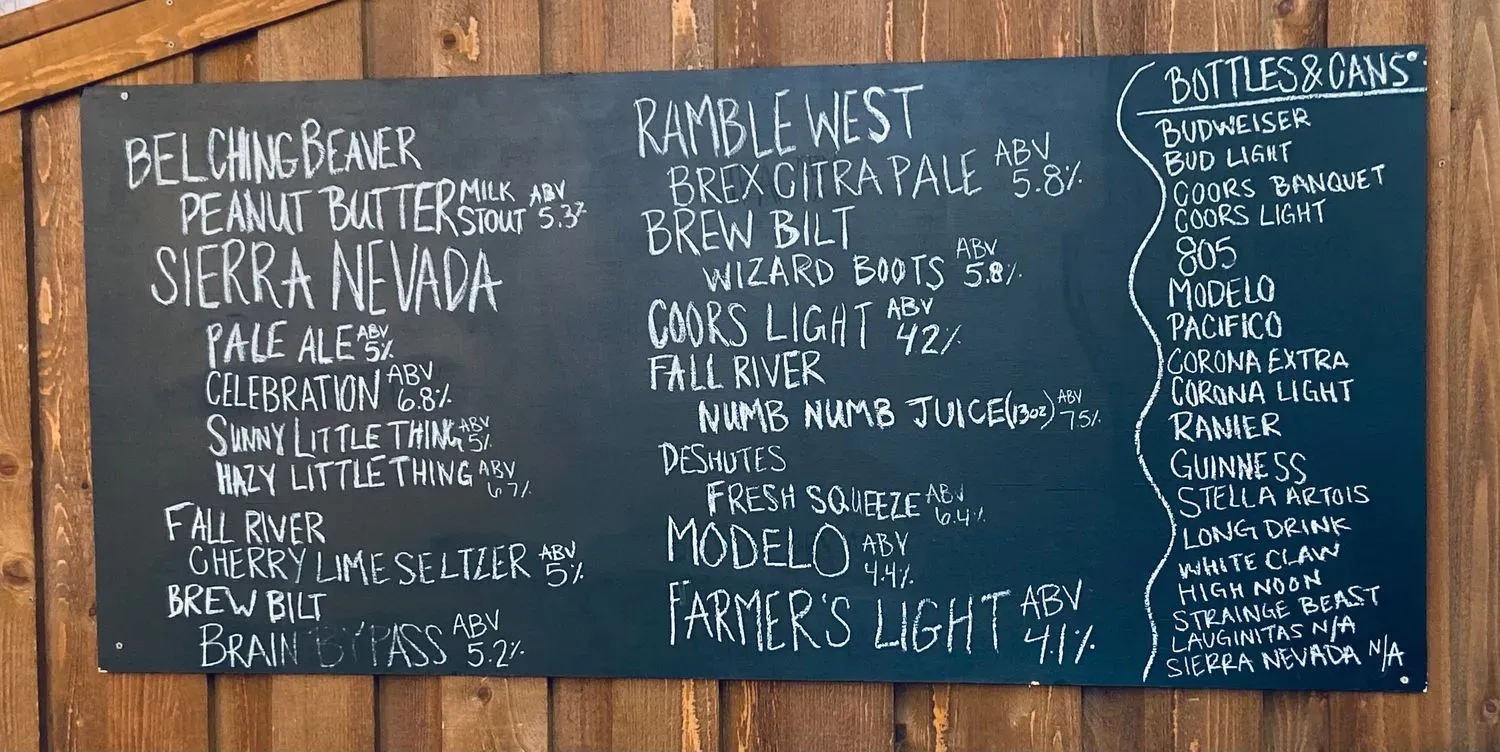 BELCHING BEAVER
PEANUT BUTTER MILK STOUT ABV 5.3%
SIERRA NEVADA
PALE ALE ABV 5%
CELEBRATION ABV 6.8%
SUNNY LITTLE THING ABV 5%
HAZY LITTLE THING ABV 6.7%
FALL RIVER
CHERRY LIME SELTZER ABV 5%
BREW BILT
BRAIN BYPASS ABV 5.2%
RAMBLE WEST
BREX CITRA PALE ABV 5.8%
BREW BILT
WIZARD BOOTS ABV 5.8%
COORS LIGHT ABV 42%
FALL RIVER
NUMB NUMB JUICE (13oz) ABV 7.5%
DESHUTES
FRESH SQUEEZE ABV 6.4%
MODELO ABV 4.4%
FARMER'S LIGHT ABV 4.1%
BOTTLES & CANS
BUDWEISER
BUD LIGHT
COORS BANQUET
COORS LIGHT
805
MODELO
PACIFICO
CORONA EXTRA
CORONA LIGHT
RANIER
GUINNESS
STELLA ARTOIS
LONG DRINK
WHITE CLAW
HIGH NOON
STRAINGE BEAST
LAUGINITAS N/A
SIERRA NEVADA N/A